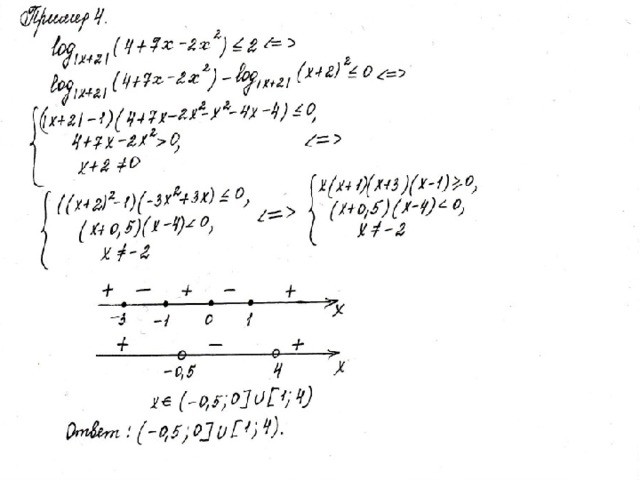 Пример 4.
log|x+2| (4+7x-2x²) ≤ 2 <=>
log|x+2| (4+7x-2x²) - log|x+2| (x+2)² ≤ 0 <=>
{ (|x+2|-1)(4+7x-2x²-x²-4x-4) ≤ 0,
4+7x-2x² > 0, <=>
x+2 ≠ 0
{ ((x+2)²-1)(-3x²+3x) ≤ 0, <=> { x(x+1)(x+3)(x-1) ≥ 0,
(x+0,5)(x-4) < 0, (x+0,5)(x-4) < 0,
x ≠ -2 x ≠ -2
+ - + - +
-3 -1 0 1 x
+ - +
-0,5 4 x
x ∈ (-0,5; 0] ∪ [1; 4)
Ответ: (-0,5; 0] ∪ [1; 4).